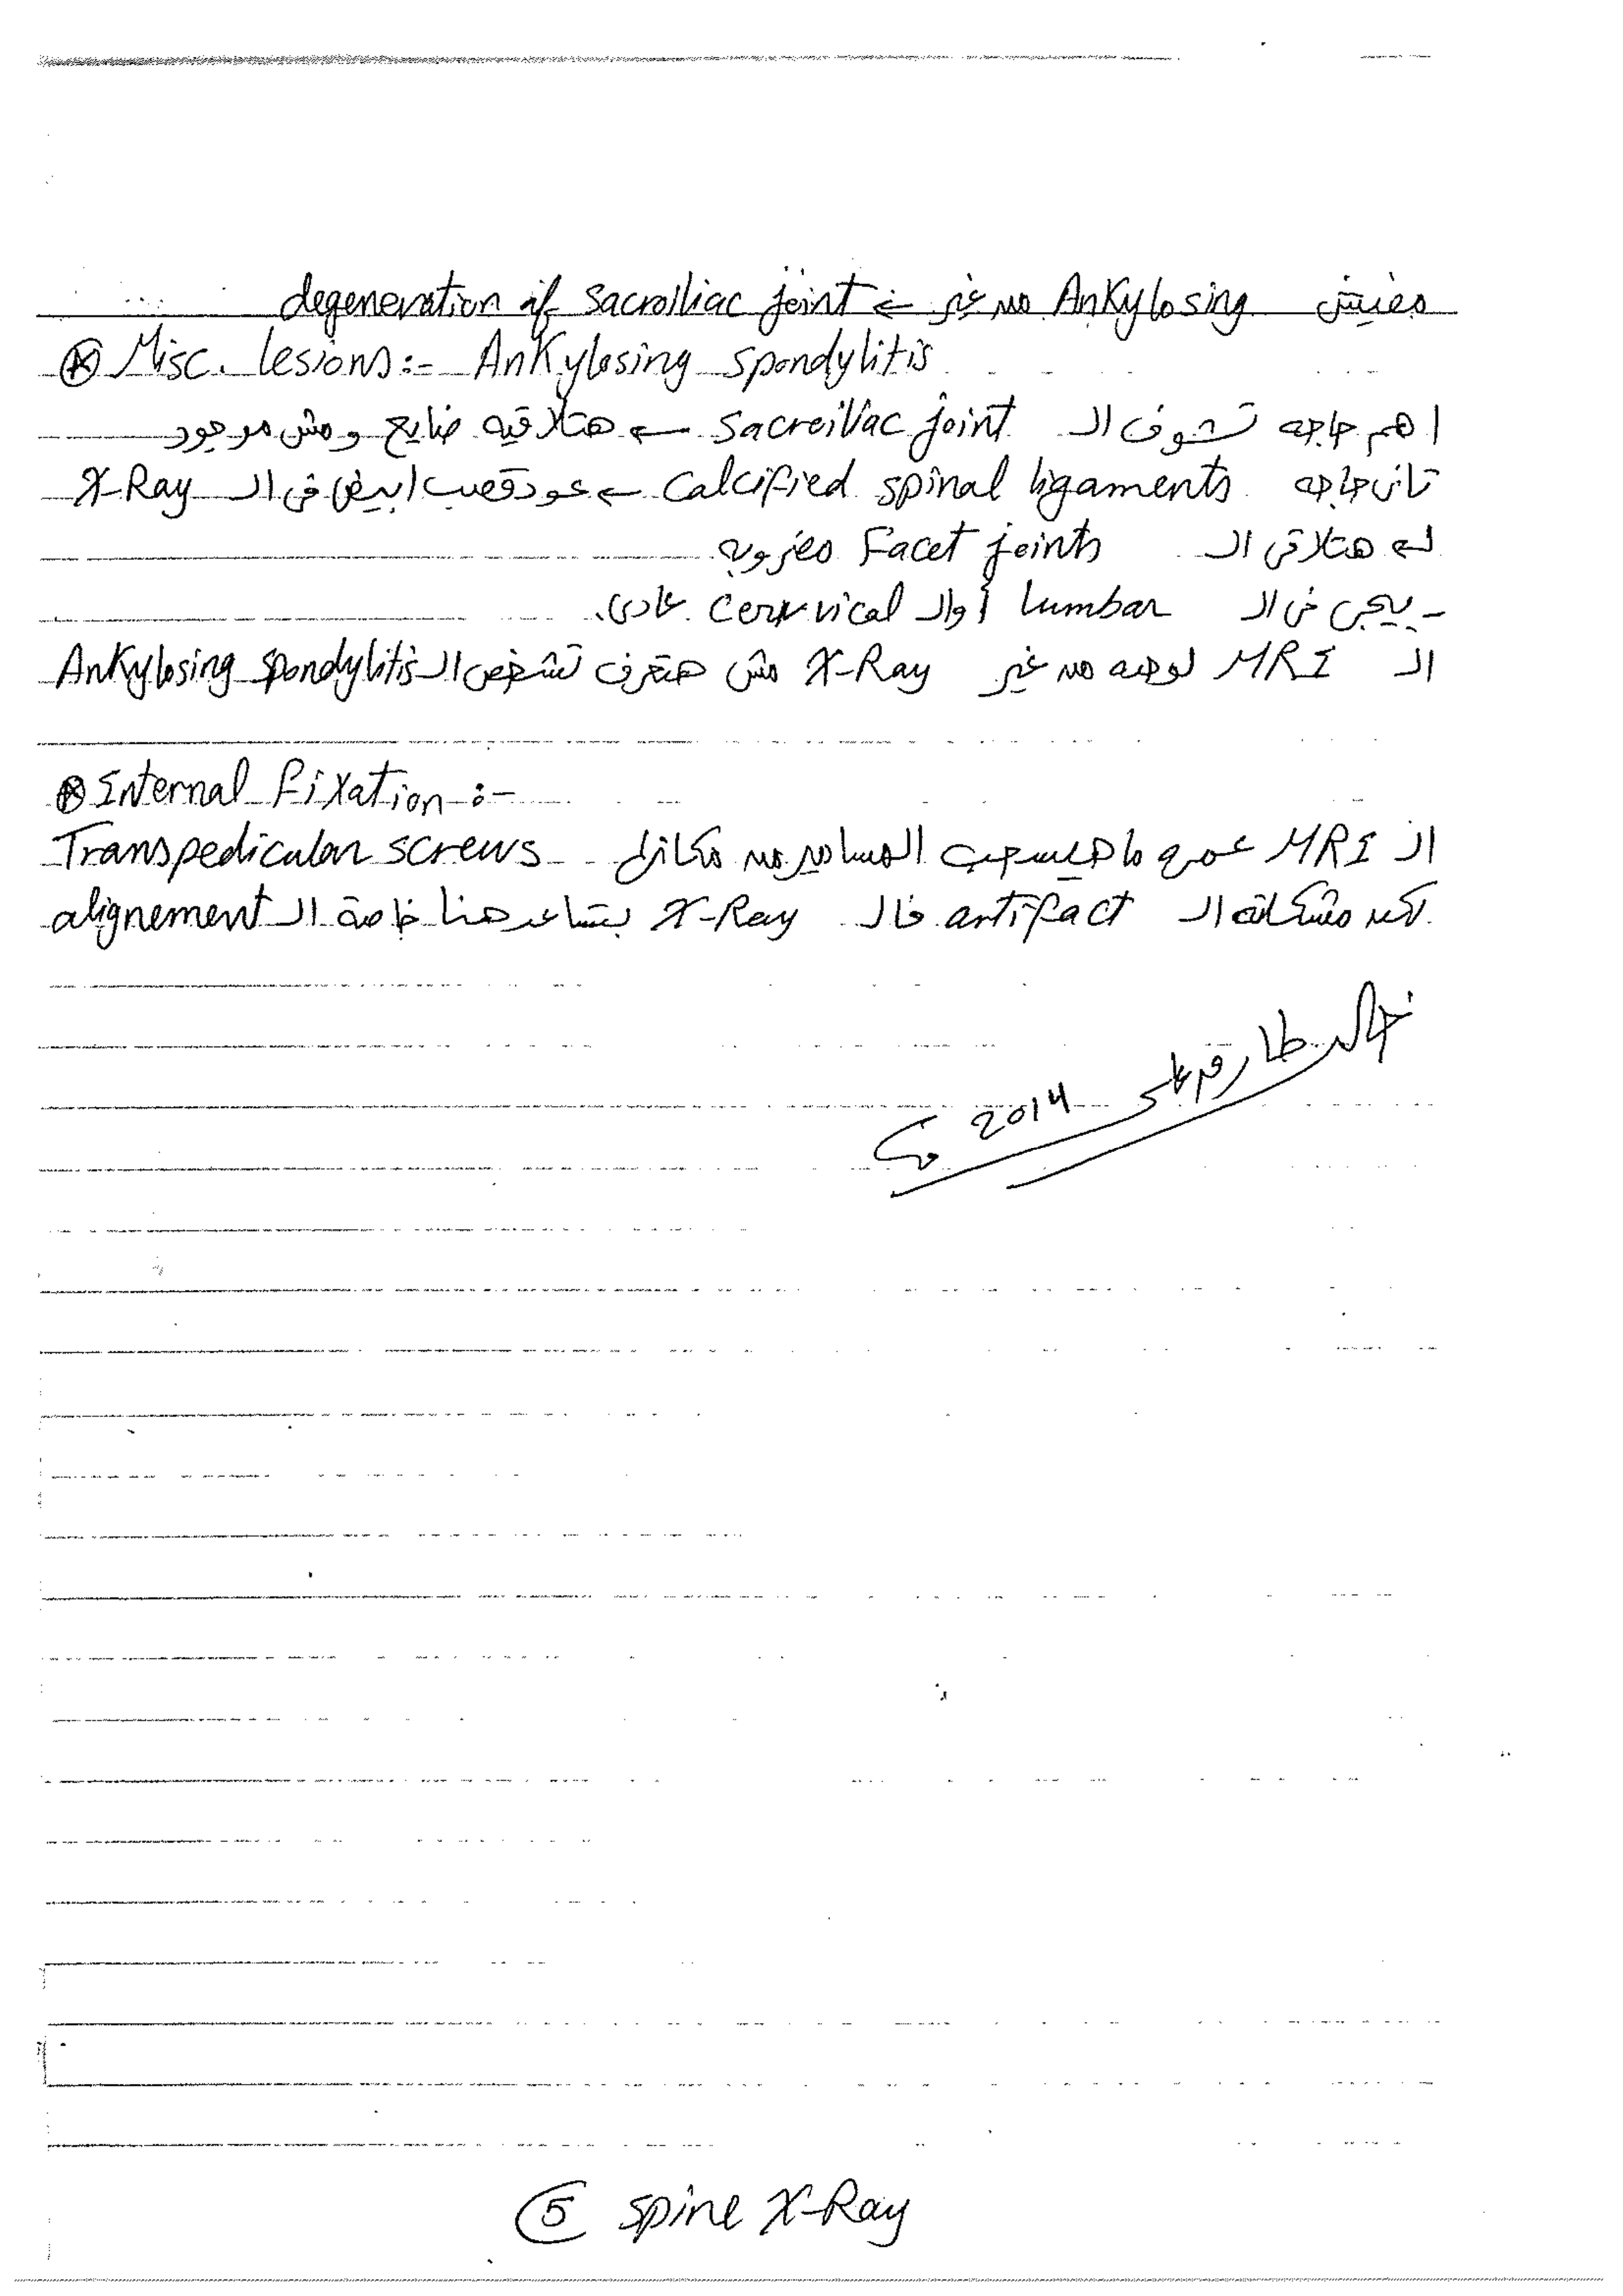 مفيش Ankylosing من غير ← degeneration of sacroiliac joint
⊛ Misc. lesions:- Ankylosing spondylitis
اهم حاجه تشوف الـ sacroiliac joint ← هتلاقيه ضايع ومش موجود
تانى حاجه calcified spinal ligaments ← عود قصب ابيض فى الـ X-Ray
له هتلاقى الـ Facet joints مضروبه
- بيجى فى الـ lumbar أو الـ cervical عادى.
الـ MRI لوحده من غير X-Ray مش هتعرف تشخص الـ Ankylosing spondylitis
⊛ Internal fixation :-
الـ MRI عمره ما هيسحب المسامير من مكانها Transpedicular screws
لكن مشكلته الـ artifact فالـ X-Ray بتساعد هنا خاصة الـ alignement
خالد طارق على
2014
5 spine X-Ray